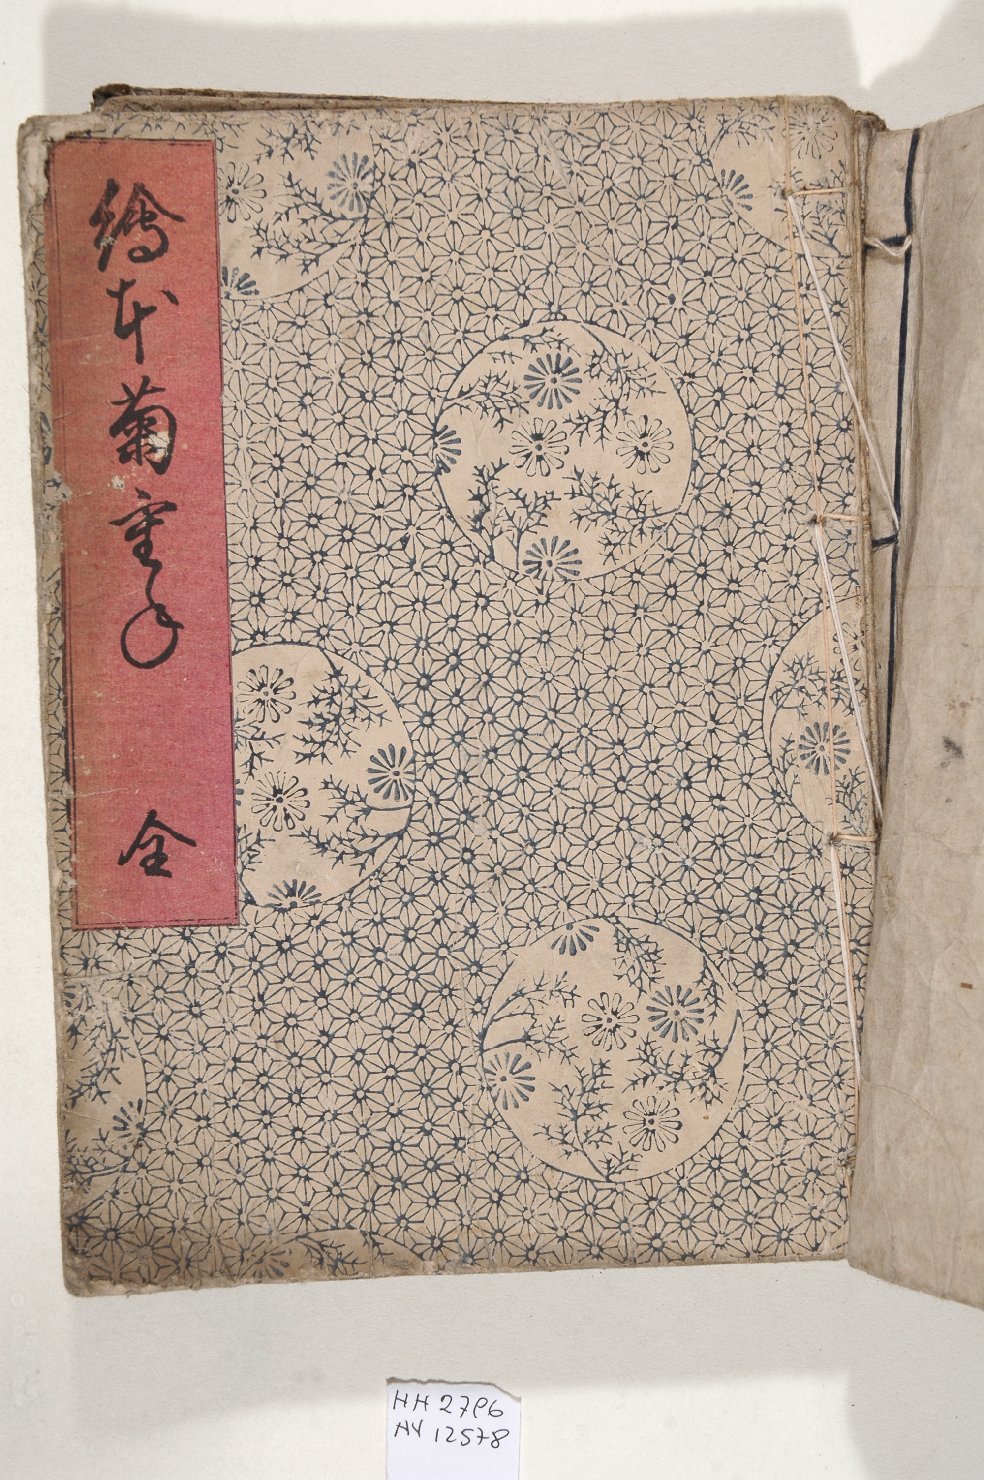 繪本菊重ね 全
HH 2796
AY 12578